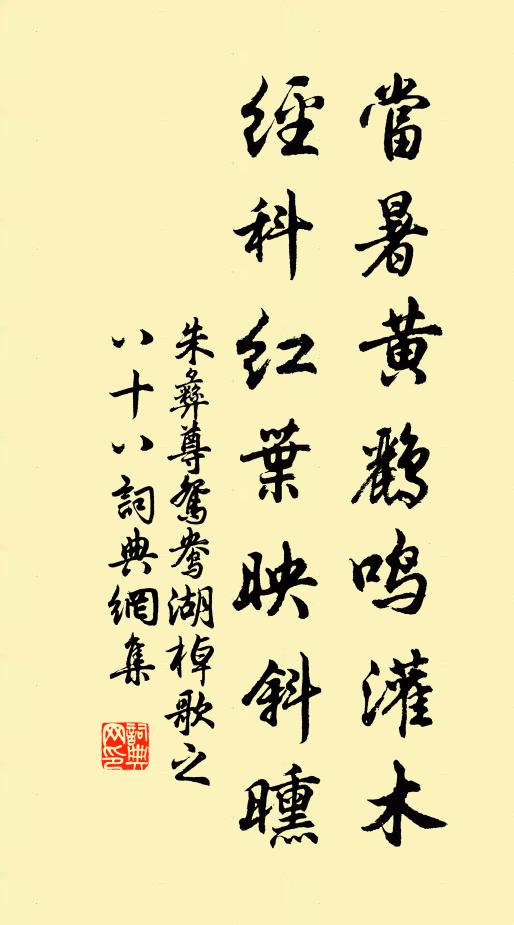 當暑黄鸝鳴灌木
經科紅葉映斜曛
朱彝尊鴛鴦湖棹歌之
八十八詞典網集
詞典网印